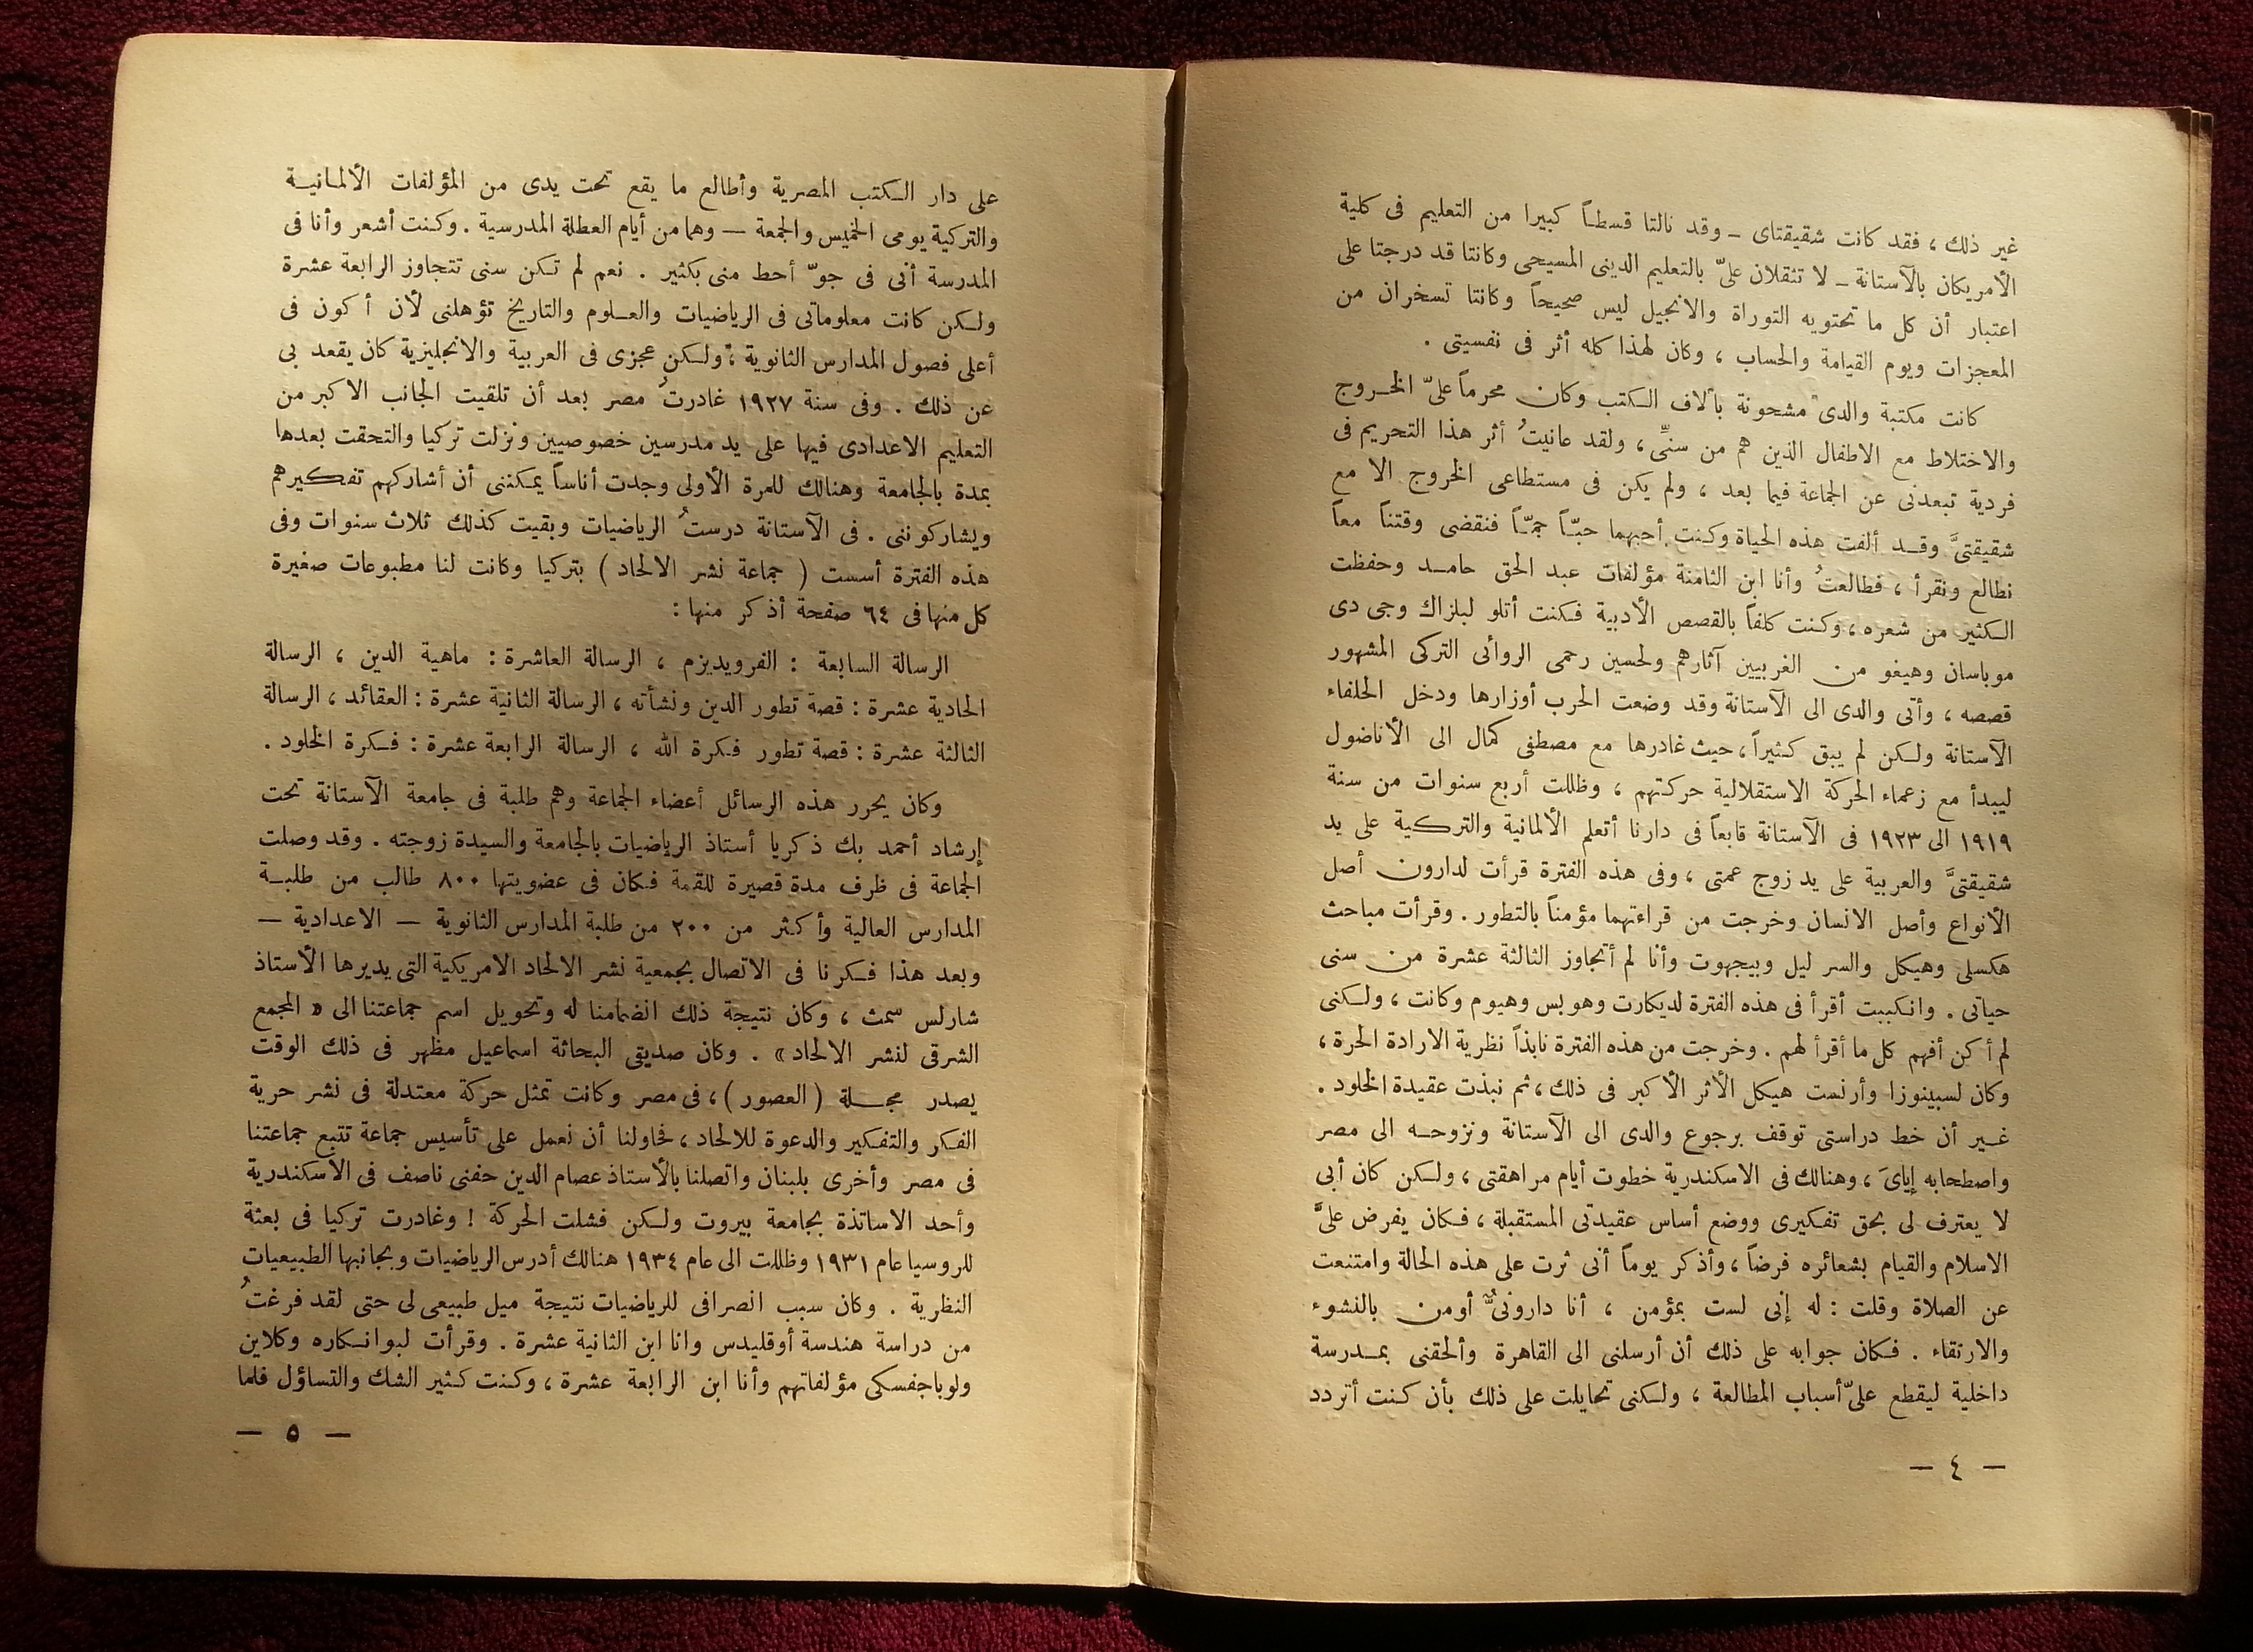 غير ذلك ، فقد كانت شقيقتاى ــ وقد نالتا قسطاً كبيرا من التعليم فى كلية
الأمريكان بالآستانة ــ لا تثقلان علىّ بالتعليم الدينى المسيحى وكانتا قد درجتا على
اعتبار أن كل ما تحتويه التوراة والانجيل ليس صحيحاً وكانتا تسخران من
المعجزات ويوم القيامة والحساب ، وكان لهذا كله أثر فى نفسيتى .
كانت مكتبة والدى مشحونة بآلاف الكتب وكان محرماً علىّ الخروج
والاختلاط مع الاطفال الذين هم من سنىِّ ، ولقد عانيتُ أثر هذا التحريم فى
فردية تبعدنى عن الجماعة فيما بعد ، ولم يكن فى مستطاعى الخروج الا مع
شقيقتىَّ وقد ألفت هذه الحياة وكنت أحبهما حبّاً جمّاً فنقضى وقتناً معاً
نطالع ونقرأ ، فطالعتُ وأنا ابن الثامنة مؤلفات عبد الحق حامد وحفظت
الكثير من شعره ، وكنت كلفاً بالقصص الأدبية فكنت أتلو لبلزاك وجى دى
موباسان وهيغو من الغربيين آثارهم ولحسين رحمى الروأنى التركى المشهور
قصصه ، وأتى والدى الى الآستانة وقد وضعت الحرب أوزارها ودخل الحلفاء
الآستانة ولكن لم يبق كثيراً ، حيث غادرها مع مصطفى كمال الى الأناضول
ليبدأ مع زعماء الحركة الاستقلالية حركتهم ، وظللت أربع سنوات من سنة
١٩١٩ الى ١٩٢٣ فى الآستانة قابعاً فى دارنا أتعلم الألمانية والتركية على يد
شقيقتىَّ والعربية على يد زوج عمتى ، وفى هذه الفترة قرأت لدارون أصل
الأنواع وأصل الانسان وخرجت من قراءتهما مؤمناً بالتطور . وقرأت مباحث
هكسلى وهيكل والسر ليل وبيجهوت وأنا لم أتجاوز الثالثة عشرة من سنى
حياتى . وانكببت أقرأ فى هذه الفترة لديكارت وهوبس وهيوم وكانت ، ولكنى
لم أكن أفهم كل ما أقرأ لهم . وخرجت من هذه الفترة نابذاً نظرية الارادة الحرة ،
وكان لسبينوزا وأرنست هيكل الأثر الأكبر فى ذلك ، ثم نبذت عقيدة الخلود .
غير أن خط دراستى توقف برجوع والدى الى الآستانة ونزوحه الى مصر
واصطحابه إياىَ ، وهنالك فى الاسكندرية خطوت أيام مراهقتى ، ولكن كان أبى
لا يعترف لى بحق تفكيرى ووضع أساس عقيدتى المستقبلة ، فكان يفرض علىَّ
الاسلام والقيام بشعائره فرضاً ، وأذكر يوماً أنى ثرت على هذه الحالة وامتنعت
عن الصلاة وقلت : له إنى لست بمؤمن ، أنا دارونىٌّ أومن بالنشوء
والارتقاء . فكان جوابه على ذلك أن أرسلنى الى القاهرة وألحقنى بمدرسة
داخلية ليقطع علىّ أسباب المطالعة ، ولكنى تحايلت على ذلك بأن كنت أتردد
— ٤ —
على دار الكتب المصرية وأطالع ما يقع تحت يدى من المؤلفات الألمانية
والتركية يومى الخميس والجمعة — وهما من أيام العطلة المدرسية . وكنت أشعر وأنا فى
المدرسة أنى فى جوّ أحط منى بكثير . نعم لم تكن سنى تتجاوز الرابعة عشرة
ولكن كانت معلوماتى فى الرياضيات والعلوم والتاريخ تؤهلنى لأن أكون فى
أعلى فصول المدارس الثانوية ، ولكن عجزى فى العربية والانجليزية كان يقعد بى
عن ذلك . وفى سنة ١٩٢٧ غادرتُ مصر بعد أن تلقيت الجانب الاكبر من
التعليم الاعدادى فيها على يد مدرسين خصوصيين ونزلت تركيا والتحقت بعدها
بمدة بالجامعة وهنالك للمرة الأولى وجدت أناساً يمكننى أن أشاركهم تفكيرهم
ويشاركوننى . فى الآستانة درستُ الرياضيات وبقيت كذلك ثلاث سنوات وفى
هذه الفترة أسست ( جماعة نشر الالحاد ) بتركيا وكانت لنا مطبوعات صغيرة
كل منها فى ٦٤ صفحة أذكر منها :
الرسالة السابعة : الفرويديزم ، الرسالة العاشرة : ماهية الدين ، الرسالة
الحادية عشرة : قصة تطور الدين ونشأته ، الرسالة الثانية عشرة : العقائد ، الرسالة
الثالثة عشرة : قصة تطور فكرة الله ، الرسالة الرابعة عشرة : فكرة الخلود .
وكان يحرر هذه الرسائل أعضاء الجماعة وهم طلبة فى جامعة الآستانة تحت
إرشاد أحمد بك ذكريا أستاذ الرياضيات بالجامعة والسيدة زوجته . وقد وصلت
الجماعة فى ظرف مدة قصيرة للقمة فكان فى عضويتها ٨٠٠ طالب من طلبة
المدارس العالية وأكثر من ٢٠٠ من طلبة المدارس الثانوية — الاعدادية —
وبعد هذا فكرنا فى الاتصال بجمعية نشر الالحاد الامريكية التى يديرها الأستاذ
شارلس سمث ، وكان نتيجة ذلك انضمامنا له وتحويل اسم جماعتنا الى « المجمع
الشرقى لنشر الالحاد » . وكان صديقى البحاثة اسماعيل مظهر فى ذلك الوقت
يصدر مجلة ( العصور ) ، فى مصر وكانت تمثل حركة معتدلة فى نشر حرية
الفكر والتفكير والدعوة للالحاد ، فحاولنا أن نعمل على تأسيس جماعة تتبع جماعتنا
فى مصر وأخرى بلبنان واتصلنا بالأستاذ عصام الدين حفنى ناصف فى الاسكندرية
وأحد الاساتذة بجامعة بيروت ولكن فشلت الحركة ! وغادرت تركيا فى بعثة
للروسيا عام ١٩٣١ وظللت الى عام ١٩٣٤ هنالك أدرس الرياضيات وبجانبها الطبيعيات
النظرية . وكان سبب انصرافى للرياضيات نتيجة ميل طبيعى لى حتى لقد فرغتُ
من دراسة هندسة أوقليدس وانا ابن الثانية عشرة . وقرأت لبوانكاره وكلاين
ولوباجفسكى مؤلفاتهم وأنا ابن الرابعة عشرة ، وكنت كثير الشك والتساؤل فلما
— ٥ —